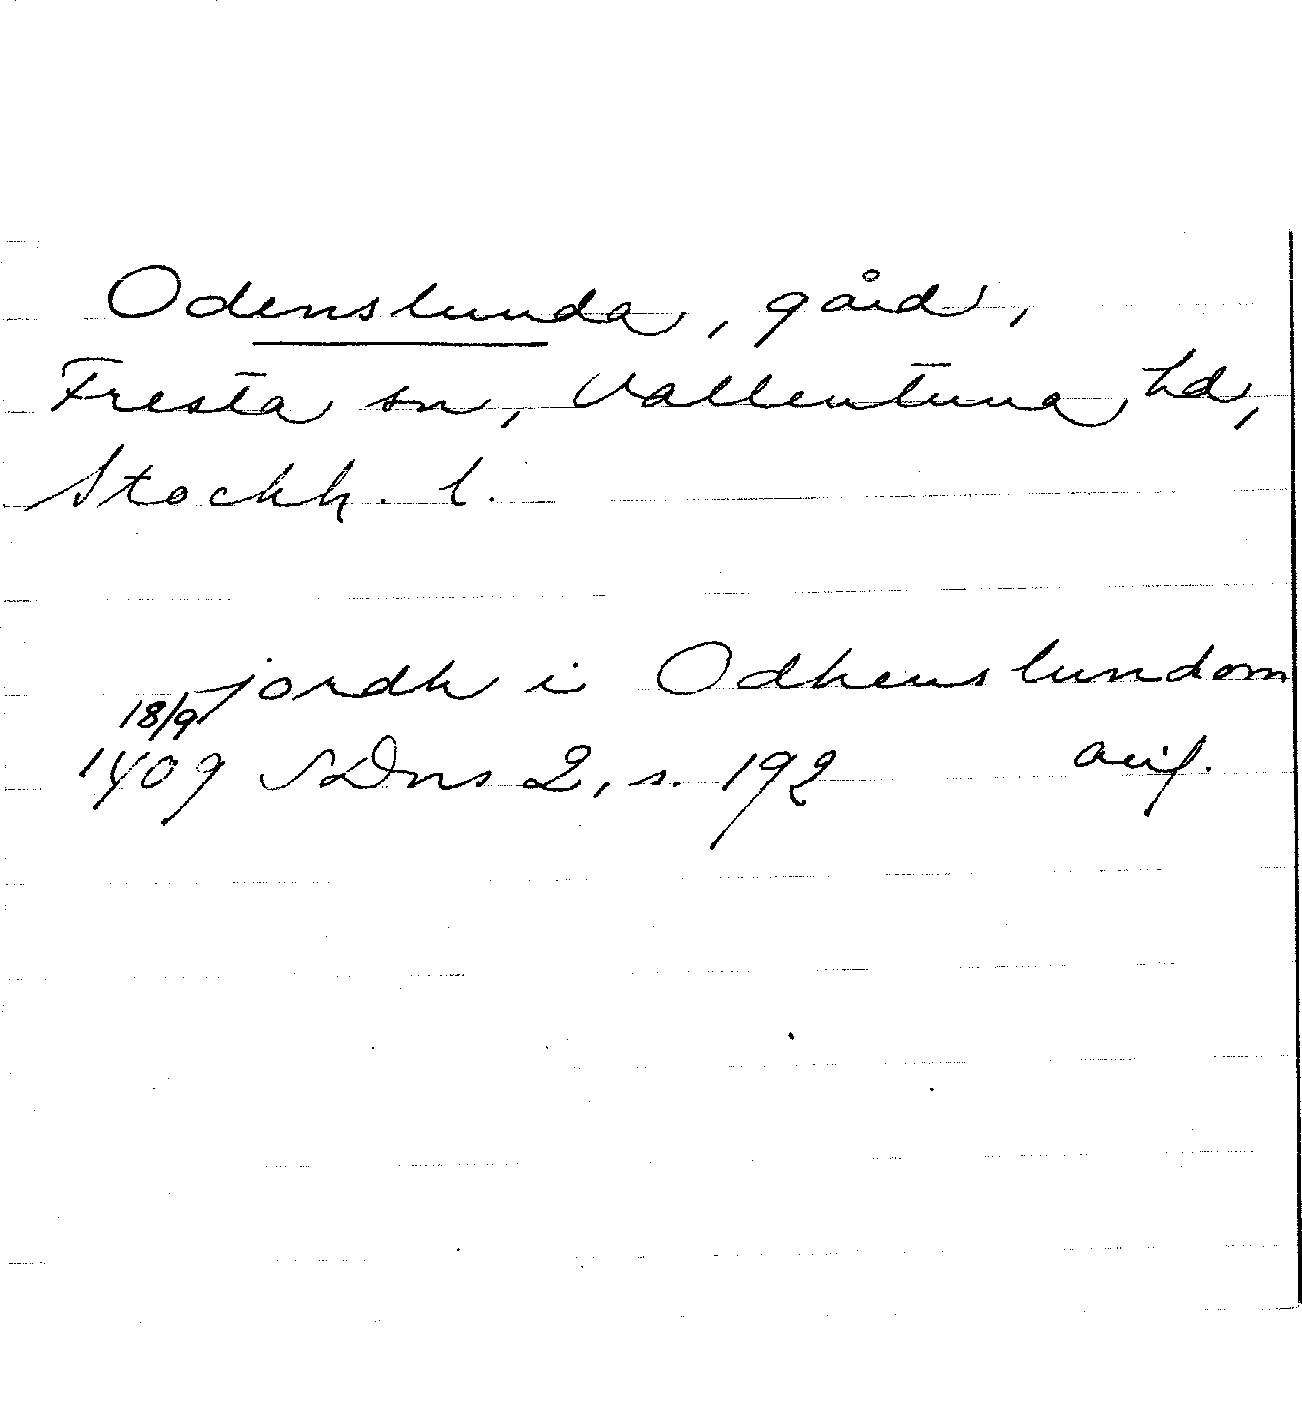 Odenslunda, gård,
Fresta sn, Vallentuna hd,
Stockh. l.
jordh i Odhenslundom
18/9
1409 SDns 2, s. 192 avs.